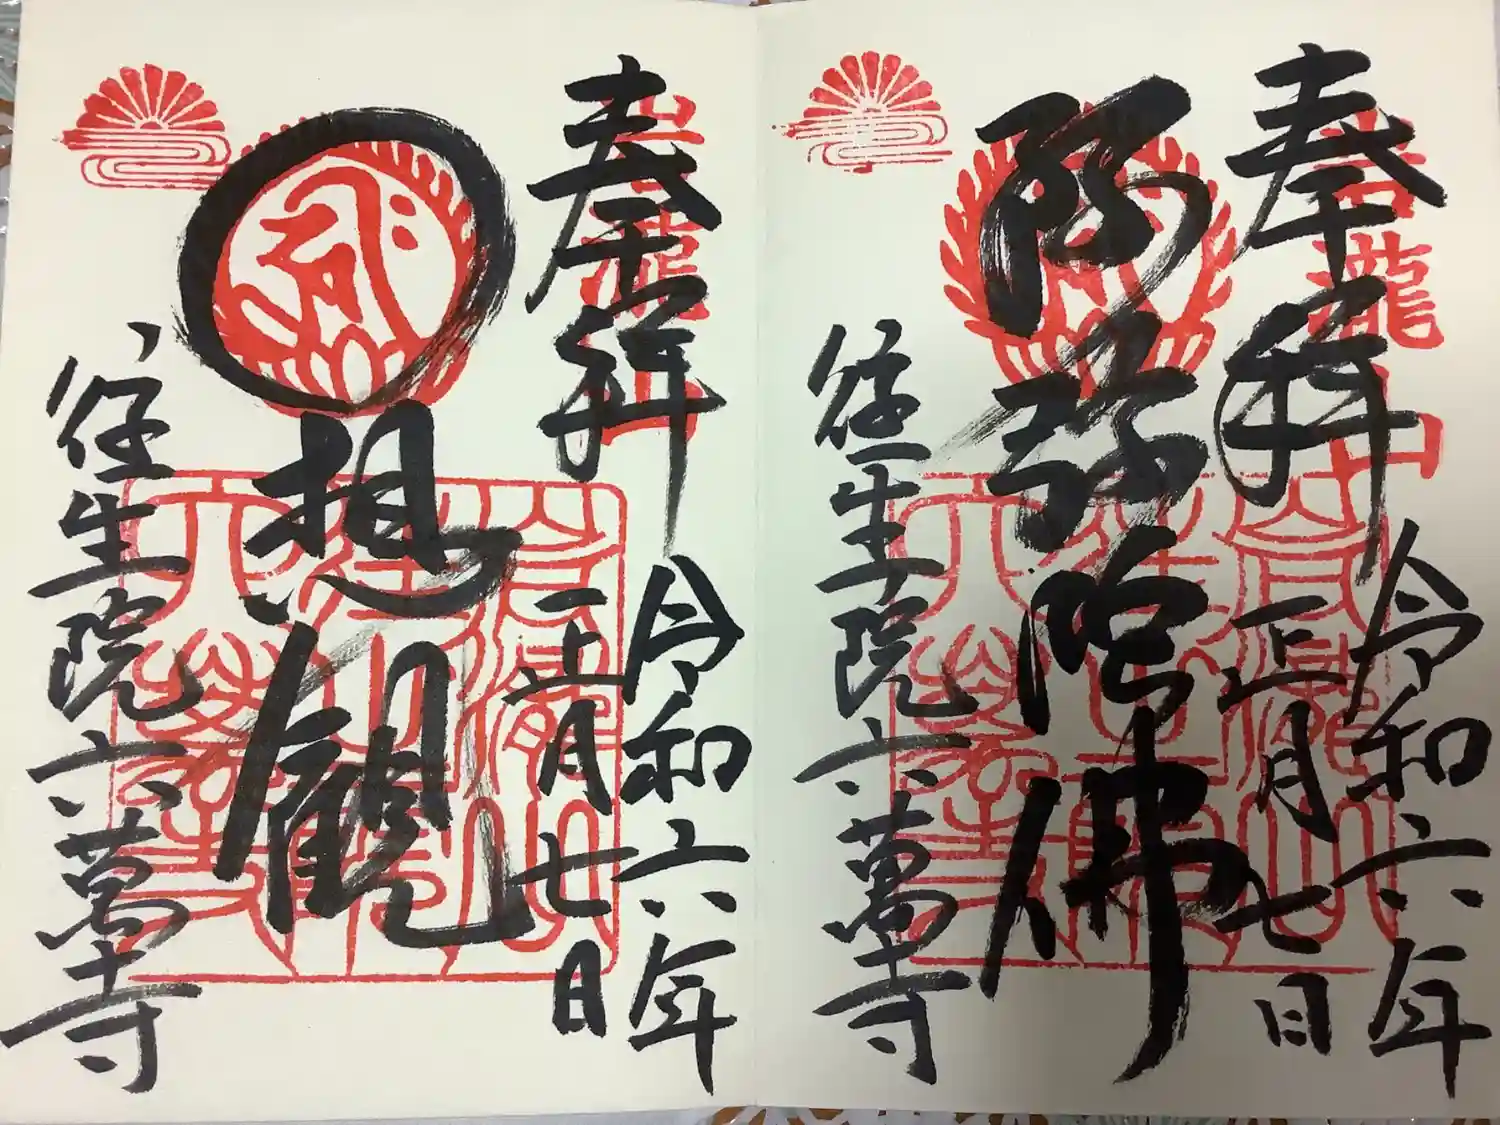 奉拝
岩瀧山
令和六年
正月七日
阿弥陀佛
往生院六萬寺
奉拝
岩瀧山
令和六年
正月七日
想観
往生院六萬寺